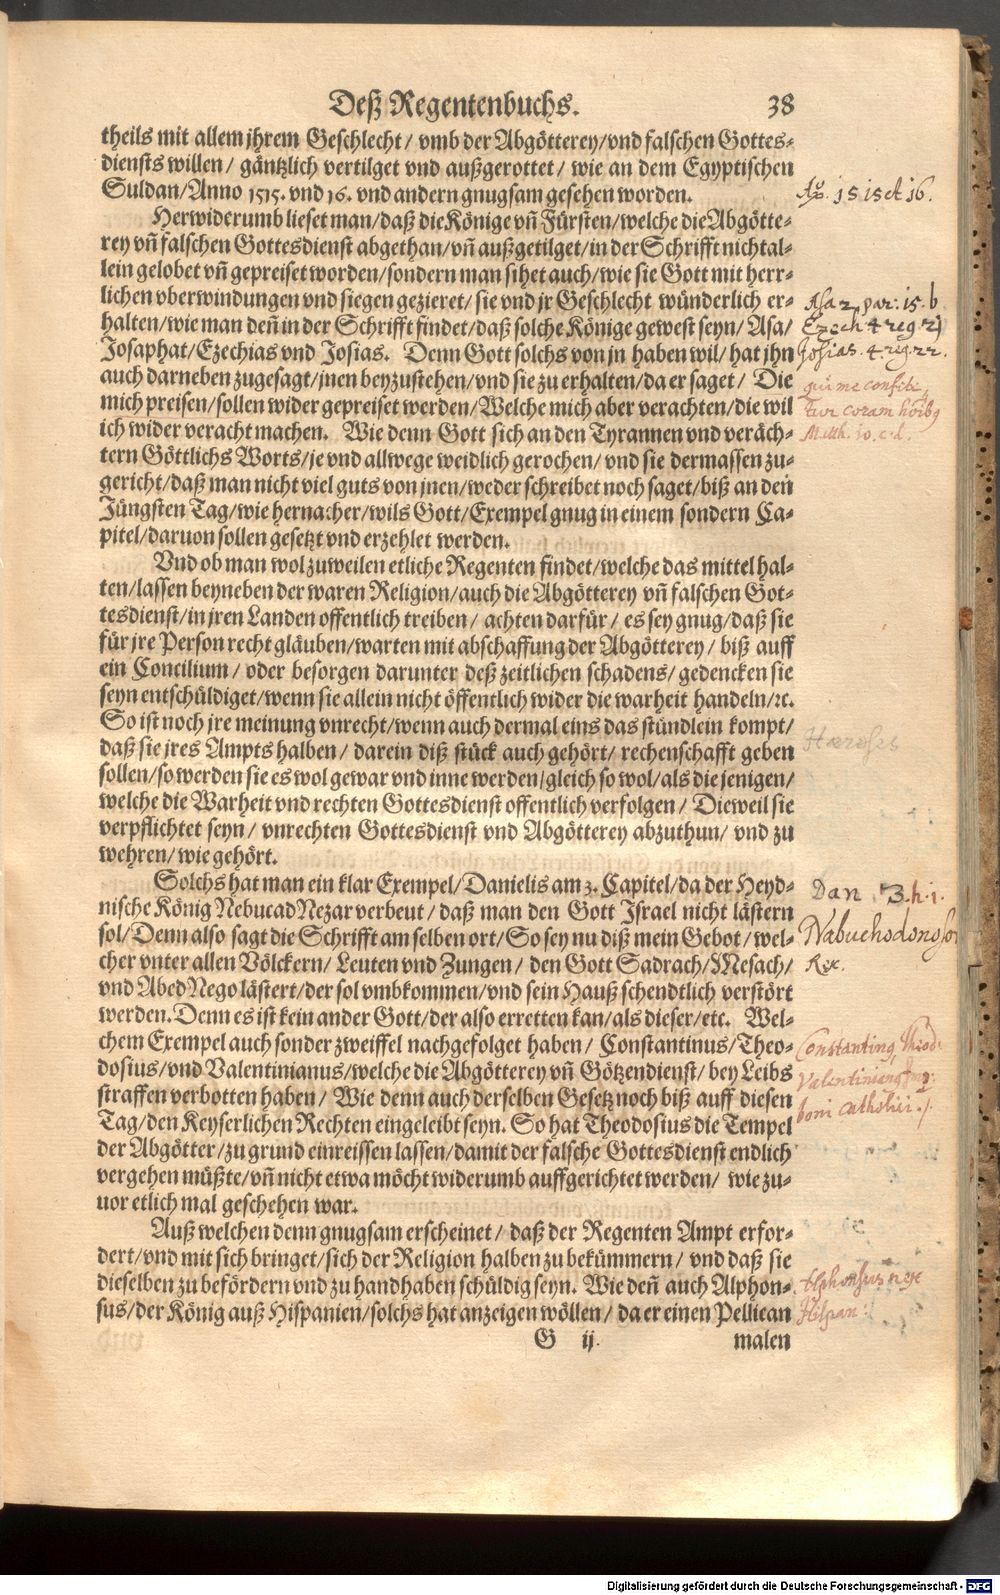 Deß Regentenbuchs. 38
theils mit allem jhrem Geschlecht / vmb der Abgötterey / vnd falschen Gottes-
diensts willen / gäntzlich vertilget vnd außgerottet / wie an dem Egyptischen
Suldan / Anno 1515. vnd 16. vnd andern gnugsam gesehen worden.
Ao. 15 15 et 16.
Herwiderumb lieset man / daß die Könige vñ Fürsten / welche die Abgötte-
rey vñ falschen Gottesdienst abgethan / vñ außgetilget / in der Schrifft nicht al-
lein gelobet vñ gepreiset worden / sondern man sihet auch / wie sie Gott mit herr-
lichen vberwindungen vnd siegen gezieret / sie vnd jr Geschlecht wünderlich er-
Asa 2 par: 15. b
halten / wie man deñ in der Schrifft findet / daß solche Könige gewest seyn / Asa /
Ezech 4 reg
Josaphat / Ezechias vnd Josias. Denn Gott solchs von jn haben wil / hat jhn
Josias. 4. reg. 22.
auch darneben zugesagt / jnen beyzustehen / vnd sie zu erhalten / da er saget / Die
qui me confite
mich preisen / sollen wider gepreiset werden / Welche mich aber verachten / die wil
tur coram hoib9
ich wider veracht machen. Wie denn Gott sich an den Tyrannen vnd veräch-
Matth. 10. c. d.
tern Göttlichs Worts / je vnd allwege weidlich gerochen / vnd sie dermassen zu-
gericht / daß man nicht viel guts von jnen / weder schreibet noch saget / biß an den
Jüngsten Tag / wie hernacher / wils Gott / Exempel gnug in einem sondern Ca-
pitel / daruon sollen gesetzt vnd erzehlet werden.
Vnd ob man wol zuweilen etliche Regenten findet / welche das mittel hal-
ten / lassen beyneben der waren Religion / auch die Abgötterey vñ falschen Got-
tesdienst / in jren Landen offentlich treiben / achten darfür / es sey gnug / daß sie
für jre Person recht gläuben / warten mit abschaffung der Abgötterey / biß auff
ein Concilium / oder besorgen darunter deß zeitlichen schadens / gedencken sie
seyn entschüldiget / wenn sie allein nicht öffentlich wider die warheit handeln / ꝛc.
So ist noch jre meinung vnrecht / wenn auch dermal eins das stündlein kompt /
daß sie jres Ampts halben / darein diß stück auch gehört / rechenschafft geben
Haereses
sollen / so werden sie es wol gewar vnd inne werden / gleich so wol / als die jenigen /
welche die Warheit vnd rechten Gottesdienst offentlich verfolgen / Dieweil sie
verpflichtet seyn / vnrechten Gottesdienst vnd Abgötterey abzuthun / vnd zu
wehren / wie gehört.
Solchs hat man ein klar Exempel / Danielis am 3. Capitel / da der Heyd-
Dan. 3. h. i.
nische König NebucadNezar verbeut / daß man den Gott Israel nicht lästern
sol / Denn also sagt die Schrifft am selben ort / So sey nu diß mein Gebot / wel-
Nabuchodonosor
cher vnter allen Völckern / Leuten vnd Zungen / den Gott Sadrach / Mesach /
Rex.
vnd AbedNego lästert / der sol vmbkommen / vnd sein Hauß schendtlich verstört
werden. Denn es ist kein ander Gott / der also erretten kan / als dieser / etc. Wel-
chem Exempel auch sonder zweiffel nachgefolget haben / Constantinus / Theo-
Constantin9, Theod:
dosius / vnd Valentinianus / welche die Abgötterey vñ Götzendienst / bey Leibs
Valentinian9
straffen verbotten haben / Wie denn auch derselben Gesetz noch biß auff diesen
boni catholici.
Tag / den Keyserlichen Rechten eingeleibt seyn. So hat Theodosius die Tempel
der Abgötter / zu grund einreissen lassen / damit der falsche Gottesdienst endlich
vergehen müßte / vñ nicht etwa möcht widerumb auffgerichtet werden / wie zu-
uor etlich mal geschehen war.
Auß welchen denn gnugsam erscheinet / daß der Regenten Ampt erfor-
dert / vnd mit sich bringet / sich der Religion halben zu bekümmern / vnd daß sie
dieselben zu befördern vnd zu handhaben schüldig seyn. Wie deñ auch Alphon-
Alphonsus rex
sus / der König auß Hispanien / solchs hat anzeigen wöllen / da er einen Pellican
Hispan:
G ij. malen
Digitalisierung gefördert durch die Deutsche Forschungsgemeinschaft - DFG